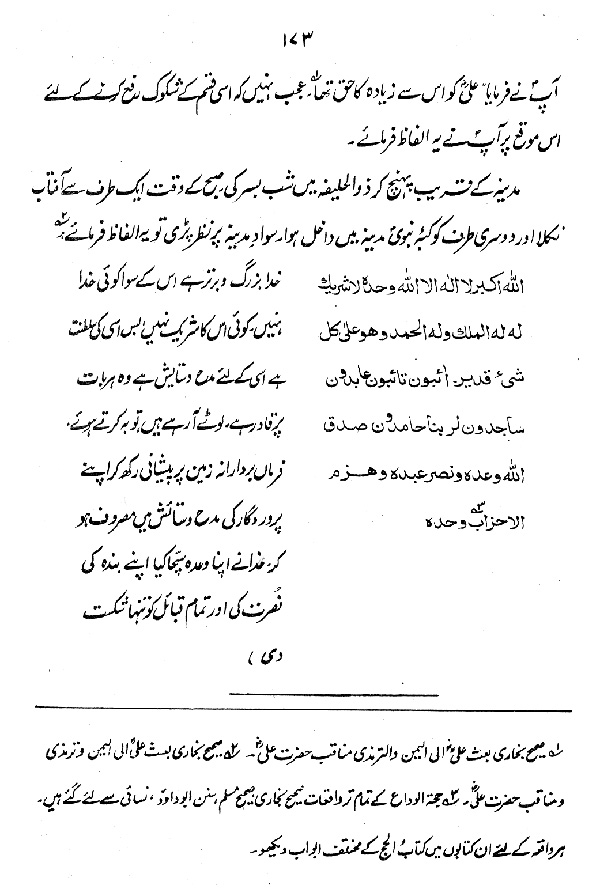 ۱۷۳
آپؐ نے فرمایا "علیؓ کو اس سے زیادہ کا حق تھا"۱؎ عجب نہیں کہ اسی قسم کے شکوک رفع کرنے کے لئے
اس موقع پر آپؐ نے یہ الفاظ فرمائے۔
مدینہ کے قریب پہنچ کر ذوالحلیفہ میں شب بسر کی صبح کے وقت ایک طرف سے آفتاب
نکلا اور دوسری طرف کوکبۂ نبوی مدینہ میں داخل ہوا، سوادِ مدینہ پر نظر پڑی تو یہ الفاظ فرمائے۲؎
الله اكبر لا اله الا الله وحده لا شريك
له له الملك وله الحمد وهو على كل
شىء قدير۔ ائبون تائبون عابدون
ساجدون لربنا حامدون صدق
الله وعده ونصر عبده وهزم
الاحزاب وحده۳؎
خدا بزرگ و برتر ہے اس کے سوا کوئی خدا
نہیں، کوئی اس کا شریک نہیں بس اسی کی سلطنت
ہے اسی کے لئے مدح و ستایش ہے وہ ہر بات
پر قادر ہے، لوٹے آرہے ہیں، توبہ کرتے ہوئے،
فرماں بردارانہ زمین پر پیشانی رکھ کر اپنے
پروردگار کی مدح و ستائش میں مصروف ہو
کر، خدا نے اپنا وعدہ سچا کیا اپنے بندہ کی
نصرت کی اور تمام قبائل کو تنہا شکست
دی)
۱؎ صحیح بخاری بعث علیؓ الی الیمن والترمذی مناقب حضرت علیؓ۔ ۲؎ صحیح بخاری بعث علیؓ الی الیمن و ترمذی
و مناقب حضرت علیؓ۔ ۳؎ حجۃ الوداع کے تمام تر واقعات صحیح بخاری، صحیح مسلم، سنن ابوداؤد، نسائی سے لئے گئے ہیں۔
ہر واقعہ کے لئے ان کتابوں میں کتاب الحج کے مختلف ابواب دیکھو۔